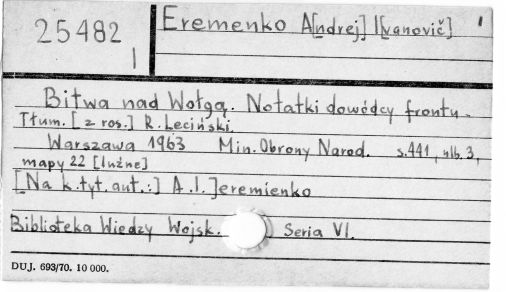 25482
I
Eremenko A[ndrej] I[vanovič]
Bitwa nad Wołgą. Notatki dowódcy frontu.
Tłum. [z ros.] R. Leciński.
Warszawa 1963 Min. Obrony Narod. s. 441, nlb. 3,
mapy 22 [luźne]
[Na k. tyt. aut.:] A. I. Jeremienko
Biblioteka Wiedzy Wojsk. Seria VI.
DUJ. 693/70. 10 000.